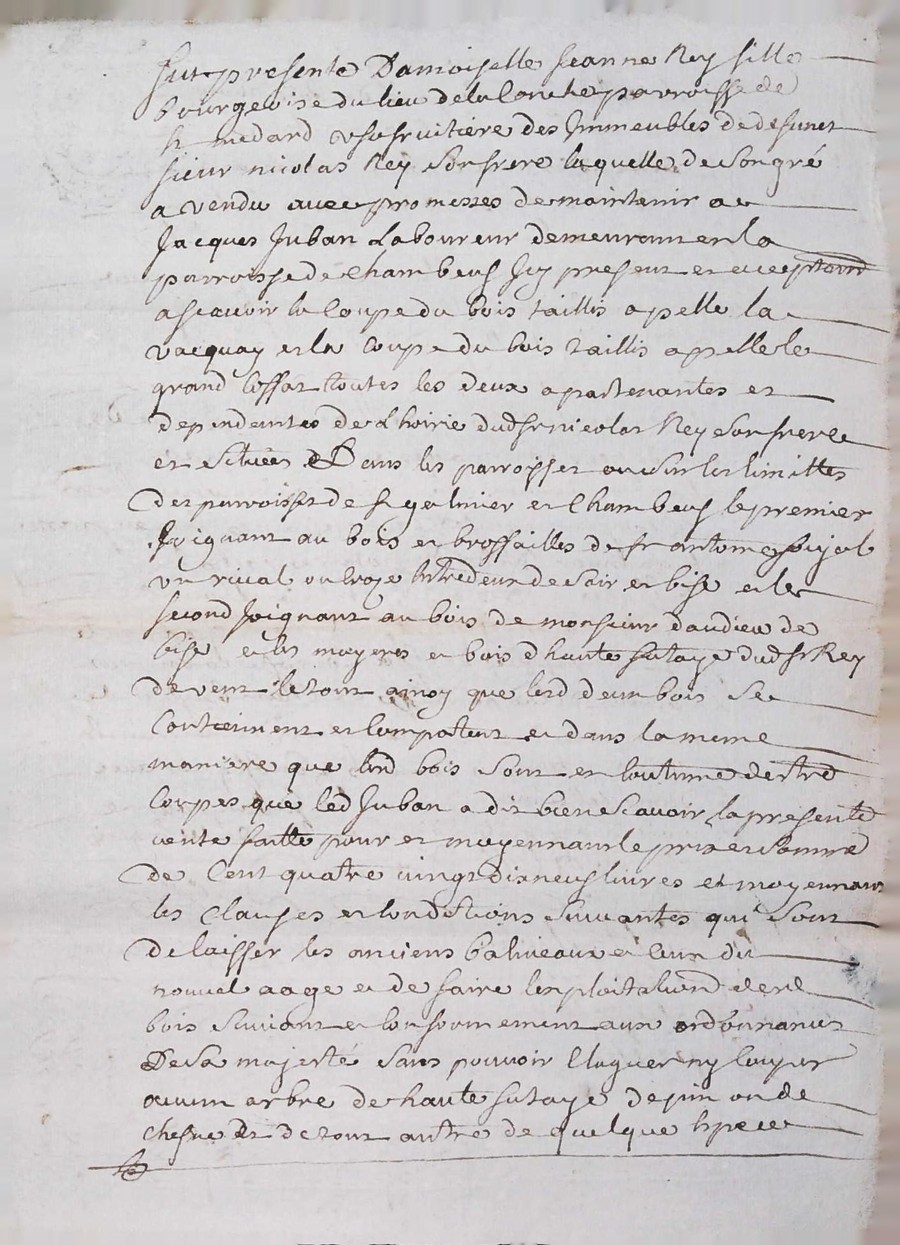 fut presente Damoiselle Jeanne Rey fille
bourgeoise du lieu de la Conche parroisse de
st medard usufruitiere des Immeubles de defunct
sieur nicolas Rey son frere laquelle de son gré
a vendu avec promesses de maintenir a
Jacques Juban Laboureur demeurant en la
parroisse de Chambeuf Icy present et acceptant
ascavoir la Coupe du bois taillis apellé la
vacquay et la Coupe du bois taillis apellé le
grand Coffat toutes les deux apartenantes et
dependantes de L hoirie dud sr nicolas Rey son frere
et situées Dans les parroisses ou sur les limittes
des parroisses de st galmier et Chambeuf le premier
Joignant au bois et brossailles de sr antoine
un rival ou entredeux de soir et bise et le
second Joignant au bois de monsieur dandieu de
bise et les mayeres et bois d haute futaye dud sr Rey
de vent le tout ainsy que lesd deux bois se
Contiennent et Comportent et dans la meme
maniere que lesd bois sont en Coutume destre
Coupes que led Juban a dit bien scavoir la presente
vente faitte pour et moyennant le prix et somme
de Cent quatre vingt dix neuf livres et moyennant
les Clauses et Conditions suivantes qui sont
de laisser les anciens baliveaux et Ceux du
nouvel aage et de faire lexploitation desd
bois suivant et Conformement aux ordonnances
De sa majesté sans pouvoir Elaguer ny Couper
aucun arbre de haute futaye de pin ou de
chesne et de tout autre de quelque Espece